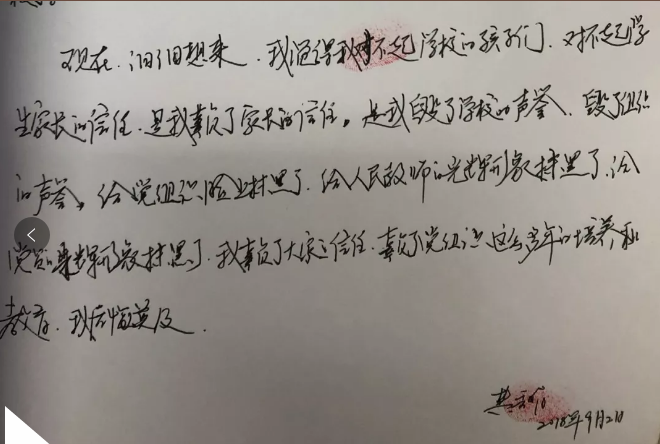 现在,细细想来,我觉得我对不起学校的孩子们,对不起学
生家长的信任,是我辜负了家长的信任。是我毁了学校的声誉,毁了组织
的声誉,给党组织脸上抹黑了,给人民教师的光辉形象抹黑了,给
党员的光辉形象抹黑了,我辜负了大家的信任,辜负了党组织这么多年的培养和
教育,我后悔莫及.
2018年9月2日